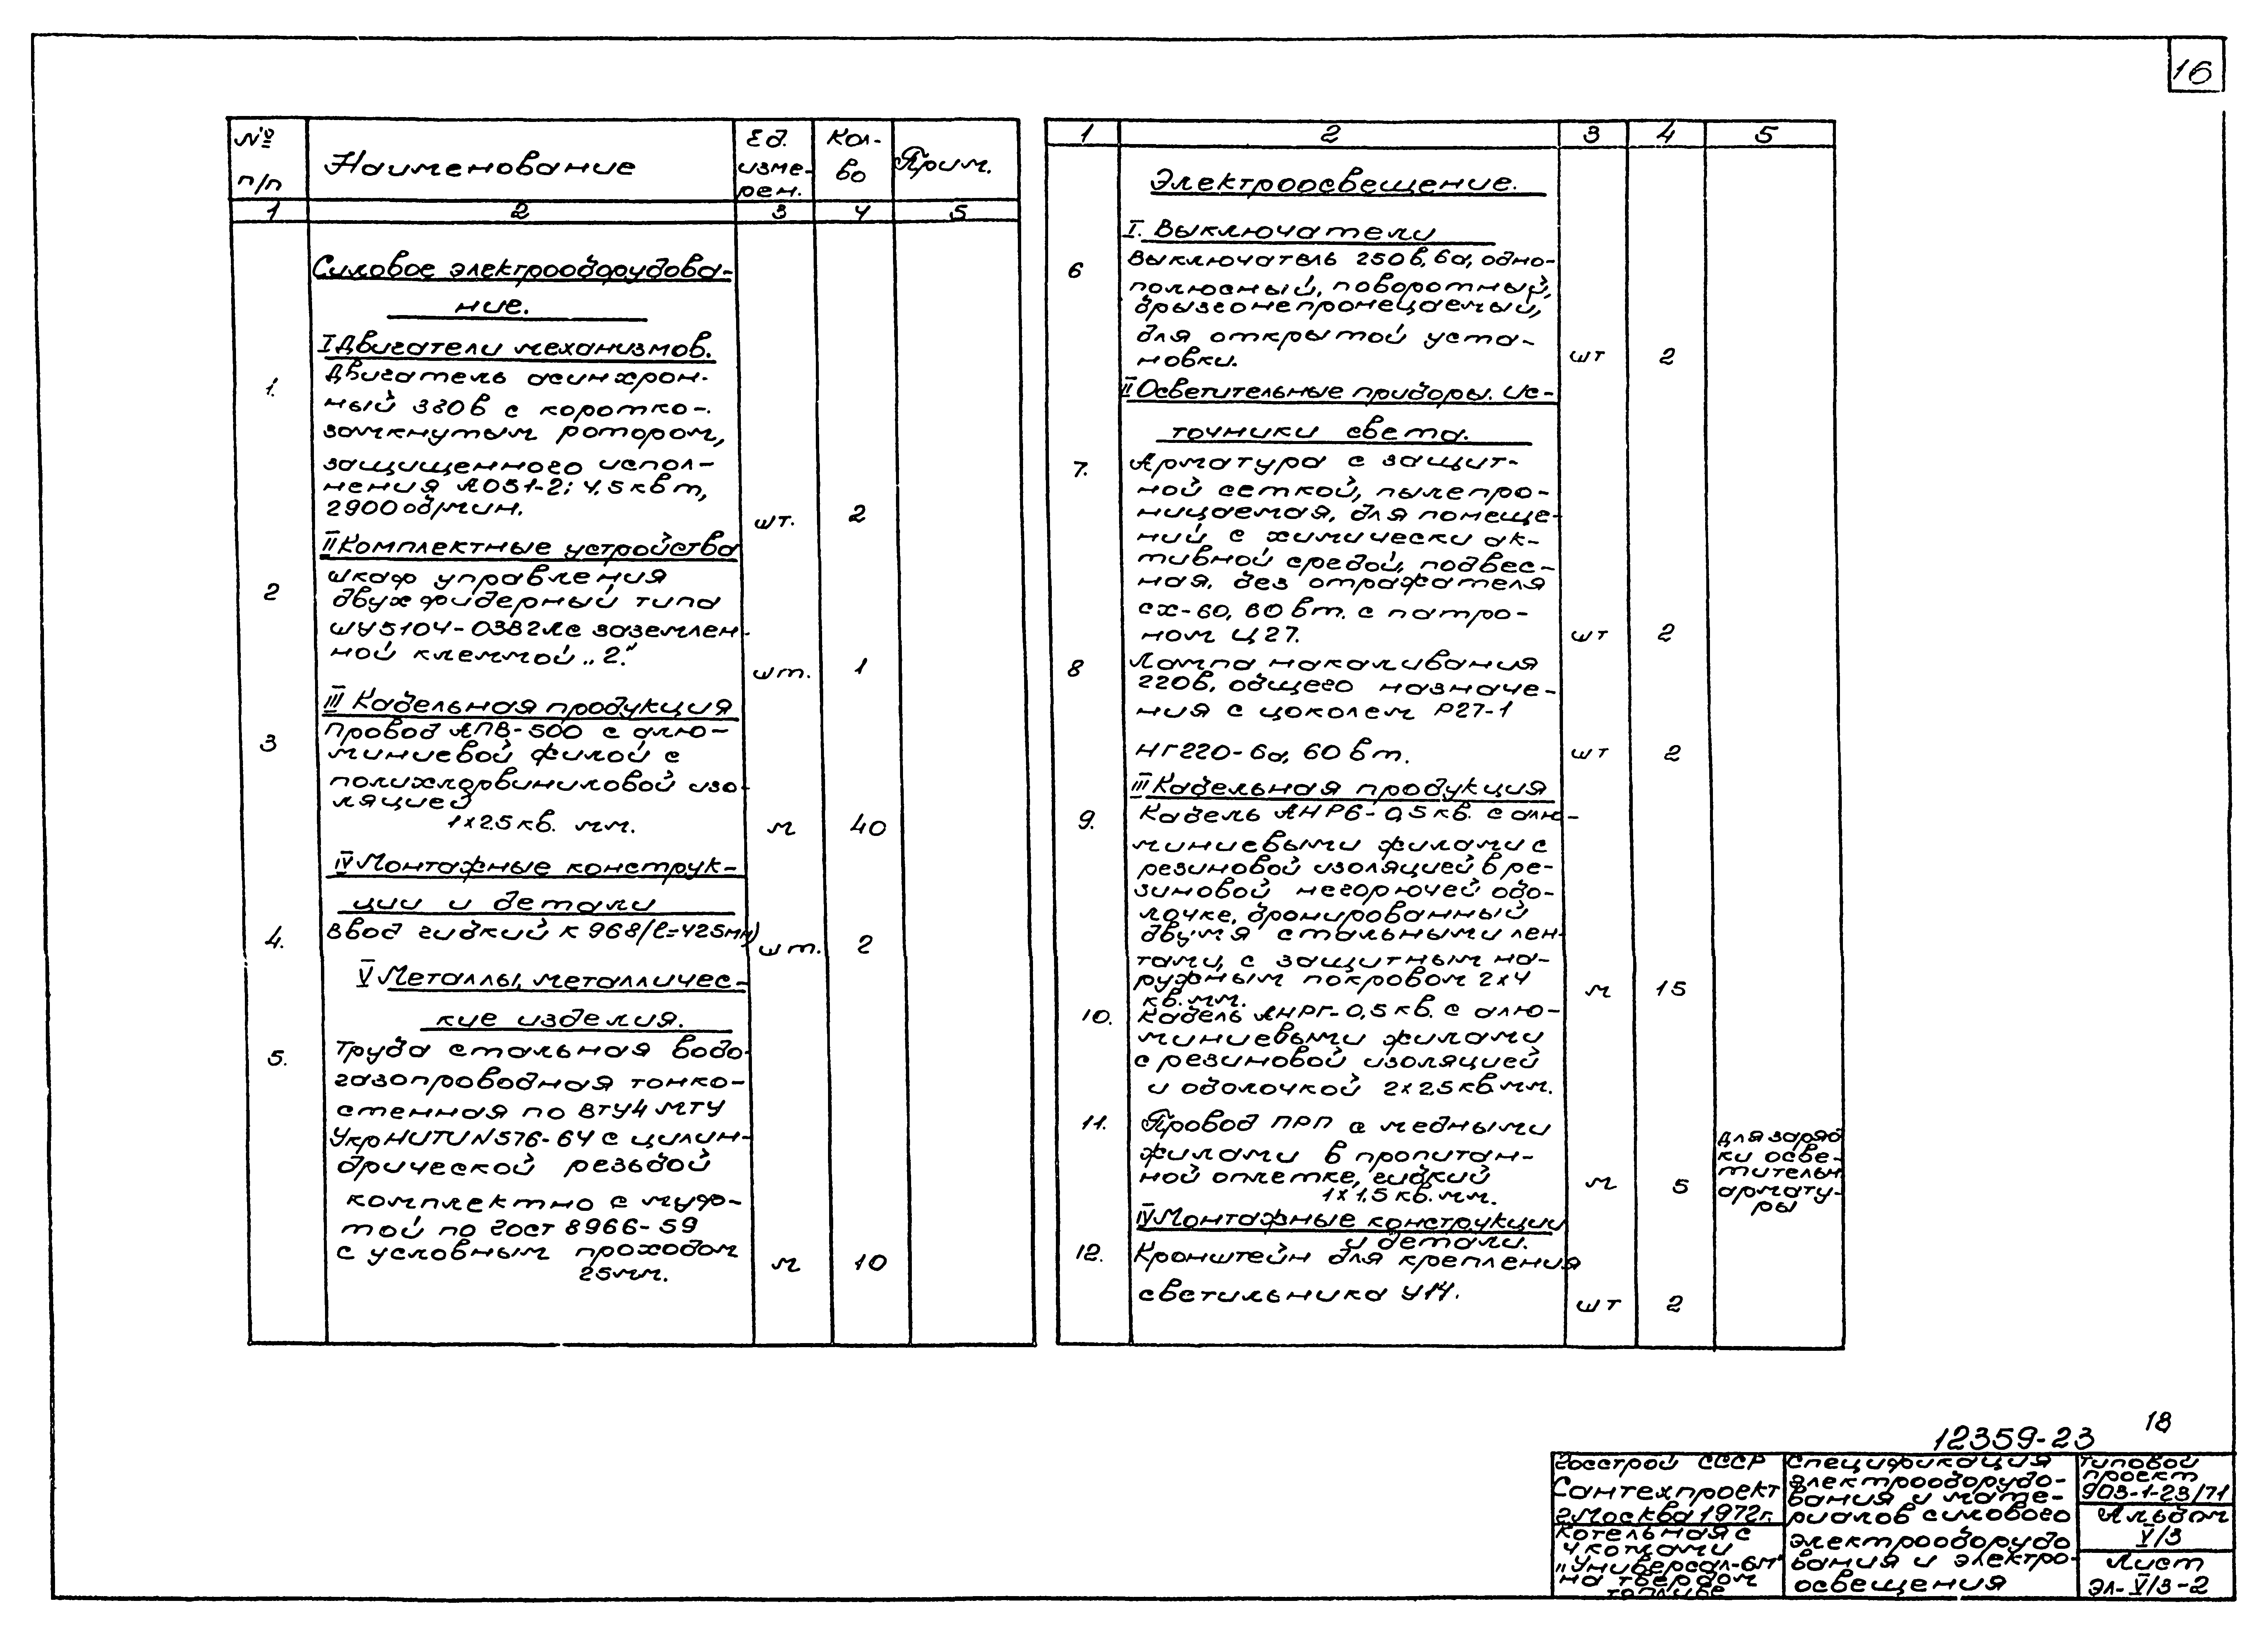 16
№ п/п
Наименование
Ед. изме- рен.
Кол- во
Прим.
1 2 3 4 5
Силовое электрооборудова-
ние.
I Двигатели механизмов.
1. Двигатель асинхрон-
ный 380в с коротко-
замкнутым ротором,
защищенного испол-
нения АО51-2; 4,5 квт,
2900 об/мин. шт. 2
II Комплектные устройства
2 Шкаф управления
двухфидерный типа
ШУ5104-03В2М с заземлен-
ной клеммой „2." шт. 1
III Кабельная продукция
3 Провод АПВ-500 с алю-
миниевой жилой с
полихлорвиниловой изо-
ляцией
1х2.5 кв. мм. м 40
IV Монтажные конструк-
ции и детали
4. Ввод гибкий К 968 (l=425мм) шт. 2
V Металлы, металличес-
кие изделия.
5. Труба стальная водо-
газопроводная тонко-
стенная по ВТУ4 МТУ
УкрНИТИ N576-64 с цилин-
дрической резьбой
комплектно с муф-
той по ГОСТ 8966-59
с условным проходом
25мм. м 10
1 2 3 4 5
Электроосвещение.
I. Выключатели
6 Выключатель 250в, 6а, одно-
полюсный, поворотный,
брызгонепроницаемый,
для открытой уста-
новки. шт 2
II Осветительные приборы. Ис-
точники света.
7. Арматура с защит-
ной сеткой, пылепро-
ницаемая, для помеще-
ний с химически ак-
тивной средой, подвес-
ная, без отражателя
СХ-60, 60 вт. с патро-
ном Ц27. шт 2
8 Лампа накаливания
220в, общего назначе-
ния с цоколем Р27-1
НГ220-6а, 60 вт. шт 2
III Кабельная продукция
9. Кабель АНРБ-0,5кв. с алю-
миниевыми жилами с
резиновой изоляцией в ре-
зиновой негорючей обо-
лочке, бронированный
двумя стальными лен-
тами, с защитным на-
ружным покровом 2х4
кв. мм. м 15
10. Кабель АНРГ-0,5 кв. с алю-
миниевыми жилами
с резиновой изоляцией
и оболочкой 2х2,5 кв мм.
11. Провод ПРП с медными
жилами в пропитан-
ной оплетке, гибкий
1х1.5 кв. мм. м 5
для заряд
ки осве-
тительн
армату-
ры
IV Монтажные конструкции
и детали.
12. Кронштейн для крепления
светильника У14. шт 2
12359-23
18
Госстрой СССР
Сантехпроект
г. Москва 1972г.
Котельная с
4 котлами
„Универсал-6М"
на твердом
топливе
Спецификация
электрооборудо-
вания и мате-
риалов силового
электрооборудо
вания и электро-
освещения
Типовой
проект
903-1-23/71
Альбом
V/3
Лист
ЭЛ-V/3-2